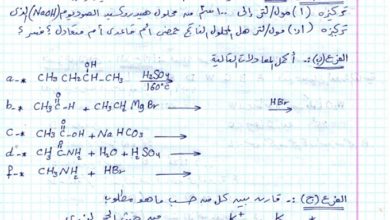 تركيزه (١) مول/لتر إلى ١٠٠ سم من محلول هيدروكسيد الصوديوم (NaOH) الذي
تركيزه (١) مول/لتر هل المحلول الناتج حمضي أم قاعدي أم متعادل؟ فسر؟
الفرع (ب): أكمل المعادلات التالية
OH
a-* CH3 CH2 CH-CH3 H2SO4 160°C
O
b-* CH3 C-H + CH3 CH2 MgBr → HBr →
O
c-* CH3 C-OH + NaHCO3 →
O
d-* CH3 C NH2 + H2O + H2SO4 →
f-* CH3 NH2 + HBr →
الفرع (ج): قارن بين كل من حسب ما هو مطلوب
K+ K